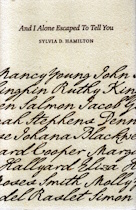 And I Alone Escaped To Tell You
SYLVIA D. HAMILTON
Nancy Young John
Kingpin Ruthy King
en Salmon Jacob
ah Stephens Penn
se Johana Blackf
ard Cooper Marga
Hallyard Eliza
Moses Smith Molly
del Raslet Simon